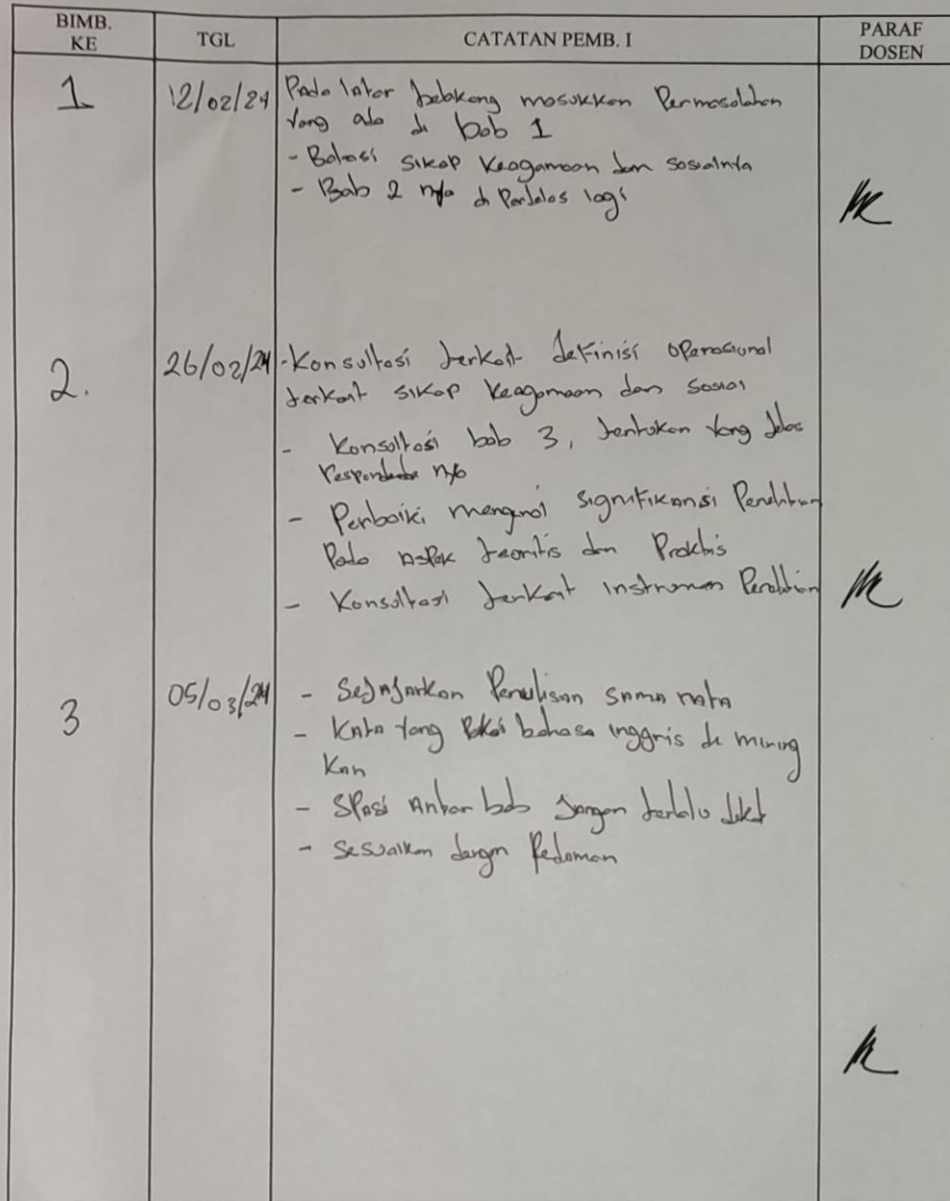 BIMB. KE
TGL
CATATAN PEMB. I
PARAF DOSEN
1
12/02/24
Pada latar belakang masukkan Permasalahan
Yang ada di bab 1
- Batasi sikap keagamaan dan sosialnya
- Bab 2 nya di Perjelas lagi
2.
26/02/24
- Konsultasi terkait definisi operasional
terkait sikap keagamaan dan sosial
- Konsultasi bab 3, tentukan yang jelas
nya
- Perbaiki mengenai signifikansi Penelitian
Pada aspek teoritis dan Praktis
- Konsultasi terkait instrumen Penelitian
3
05/03/24
- Sejajarkan Penulisan sama rata
- Kata yang Pakai bahasa inggris di miring
kan
- Spasi Antar bab jangan terlalu dekat
- sesuaikan dengan Pedoman